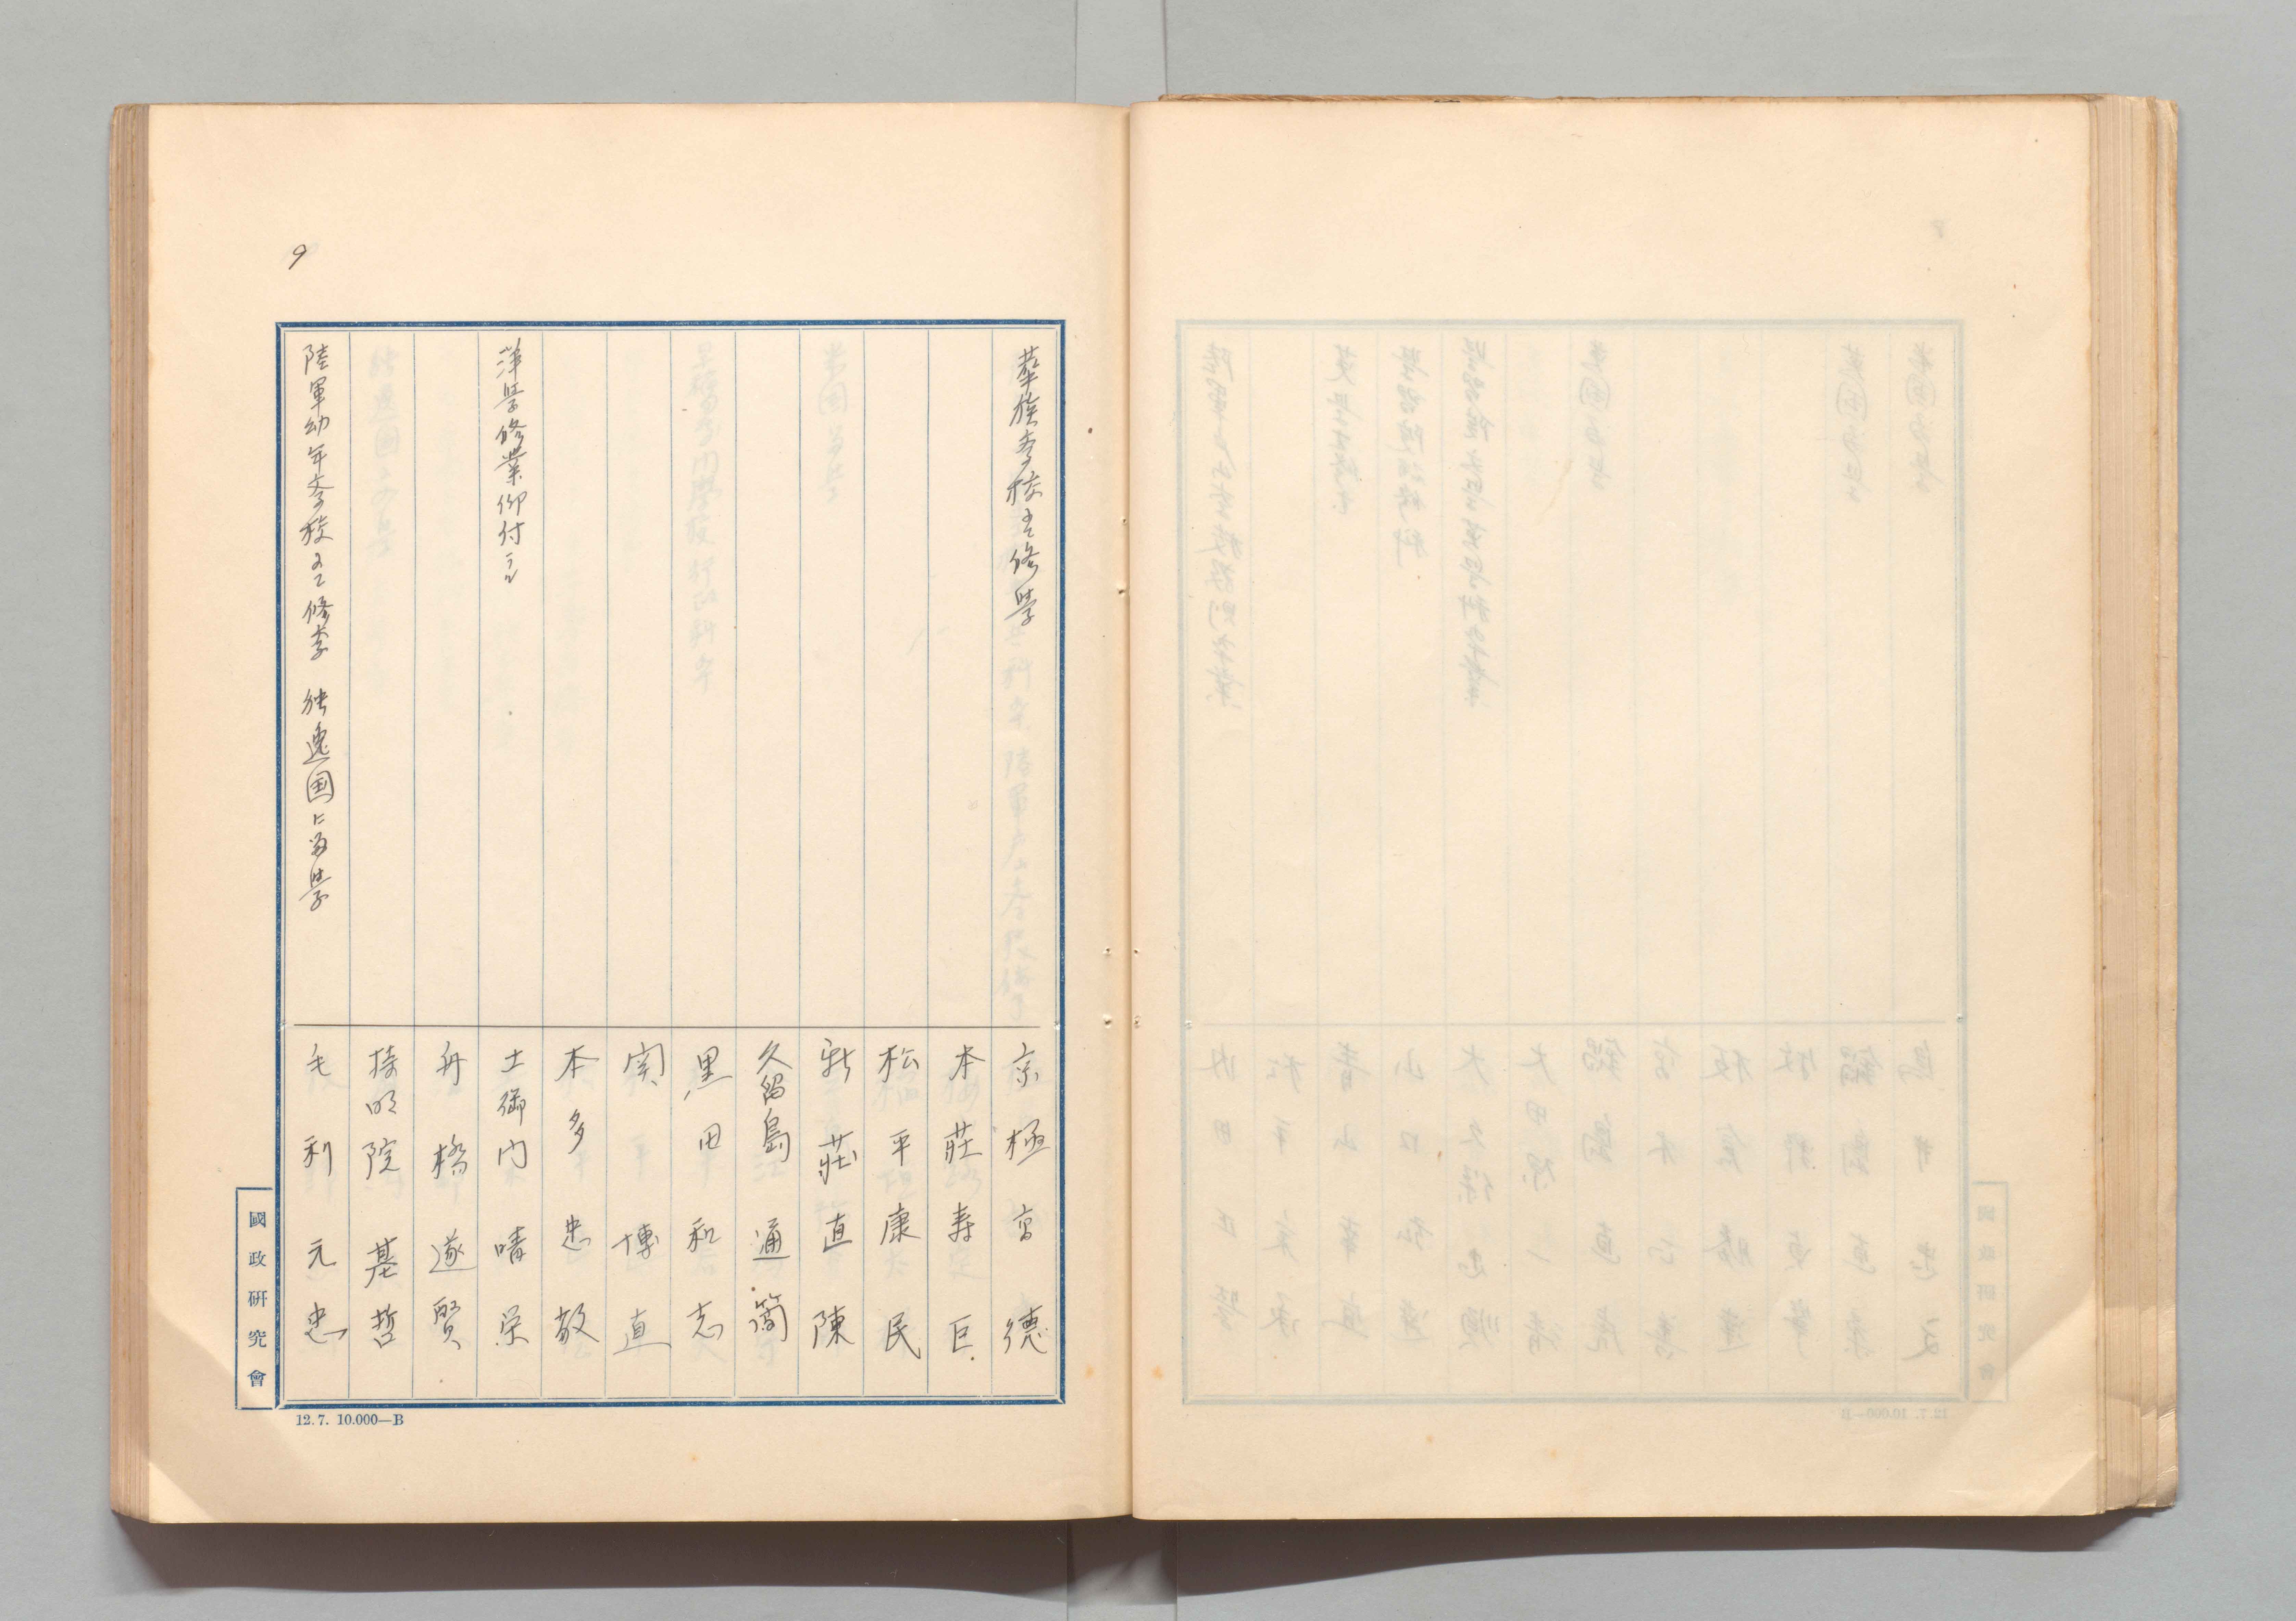 9
華族学校ニテ修學
京極高德
本莊寿巨
松平康民
新莊直陳
久留島通簡
黒田和志
関博直
本多忠敬
洋學修業仰付ラル
土御門晴栄
舟橋遂賢
持明院基哲
陸軍幼年学校ニテ修学 独逸国ニ留學
毛利元忠
國政研究會
12.7. 10.000—B